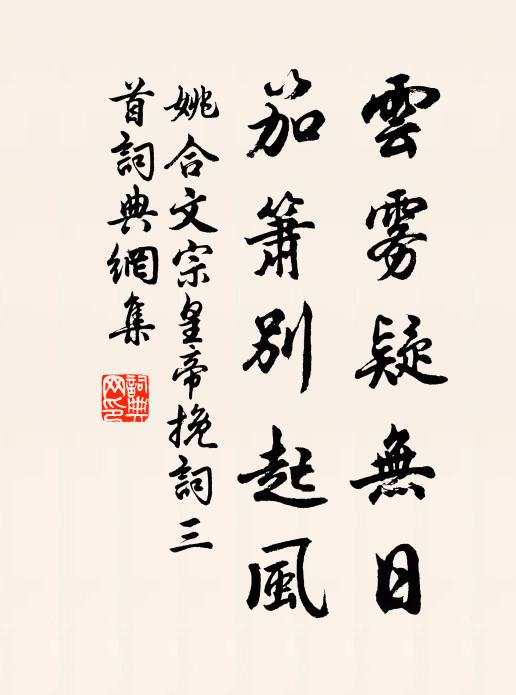 雲霧疑無日
笳簫別起風
姚合文宗皇帝挽詞三
首詞典網集
詞典
网印